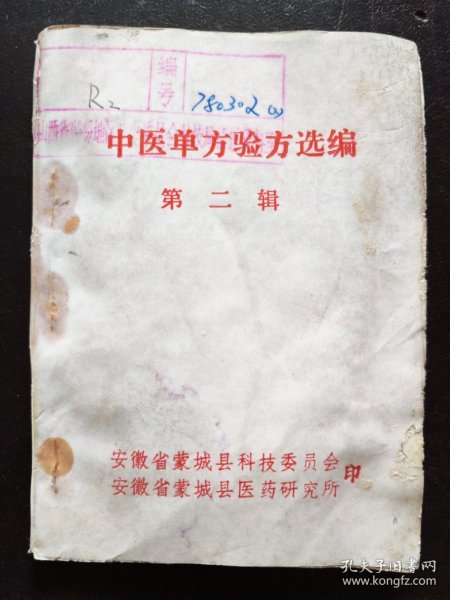 编号
R2
780302(2)
中医单方验方选编
第二辑
安徽省蒙城县科技委员会
安徽省蒙城县医药研究所
印
孔夫子旧书网
www.kongfz.com